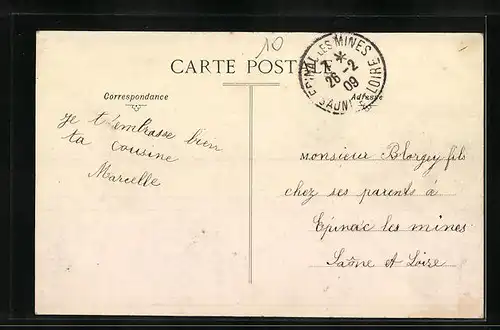 10
CARTE POSTALE
ÉPINAC LES MINES
7 *
26 -2
09
SAÔNE ET LOIRE
Correspondance
Adresse
je t'embrasse bien
ta cousine
Marcelle
monsieur Blorgey fils
chez ses parents à
Epinac les mines
Saône et Loire